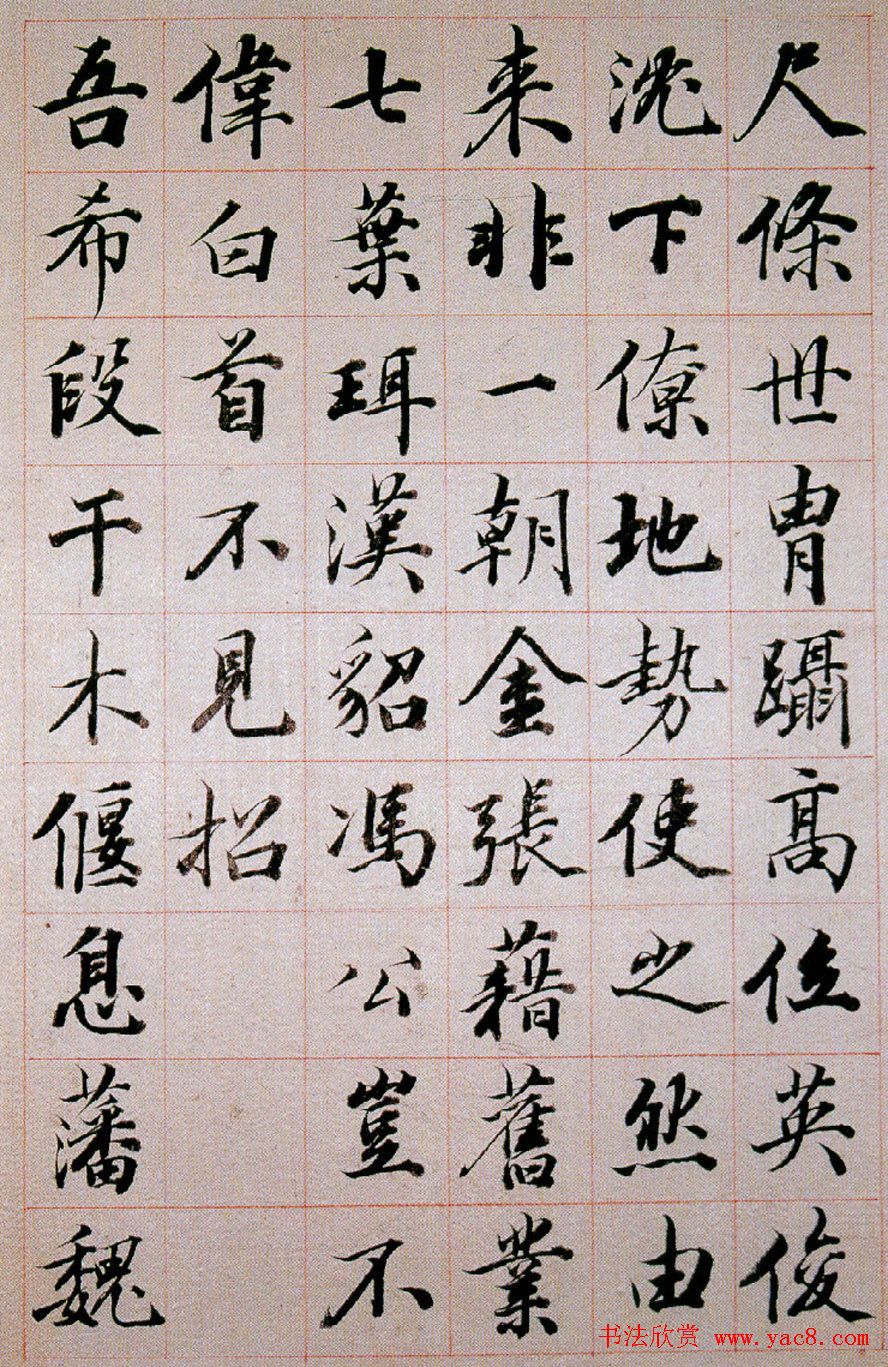 尺條世胄躡高位英俊
沈下僚地勢使之然由
来非一朝金張藉舊業
七葉珥漢貂馮公豈不
偉白首不見招
吾希段干木偃息藩魏
书法欣赏 www.yac8.com